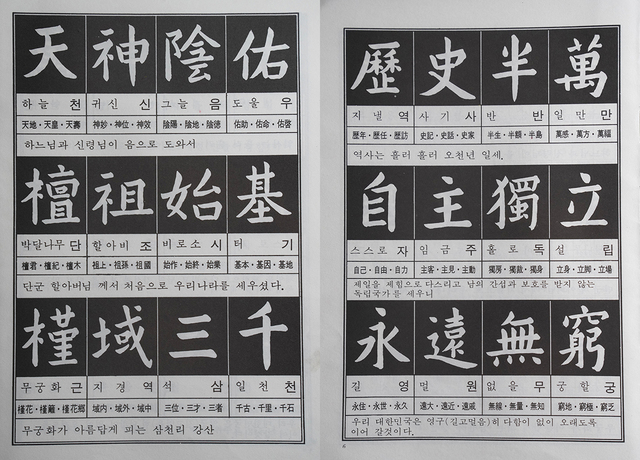 天 神 陰 佑
하늘 천 귀신 신 그늘 음 도울 우
天地・天皇・天壽 神妙・神位・神效 陰陽・陰地・陰德 佑助・佑命・佑啓
하느님과 신령님이 음으로 도와서
檀 祖 始 基
박달나무 단 할아비 조 비로소 시 터 기
檀君・檀紀・檀木 祖上・祖孫・祖國 始作・始終・始業 基本・基因・基地
단군 할아버님 께서 처음으로 우리나라를 세우셨다.
槿 域 三 千
무궁화 근 지경 역 석 삼 일천 천
槿花・槿籬・槿花鄕 域內・域外・域中 三位・三才・三者 千古・千里・千石
무궁화가 아름답게 피는 삼천리 강산
歷 史 半 萬
지낼 역 사기 사 반 반 일만 만
歷年・歷任・歷訪 史記・史話・史家 半生・半額・半島 萬感・萬方・萬福
역사는 흘러 흘러 오천년 일세.
自 主 獨 立
스스로 자 임금 주 홀로 독 설 립
自己・自由・自力 主客・主見・主動 獨房・獨裁・獨身 立身・立脚・立場
제일을 제힘으로 다스리고 남의 간섭과 보호를 받지 않는
독립국가를 세우니
永 遠 無 窮
길 영 멀 원 없을 무 궁할 궁
永住・永世・永久 遠大・遠近・遠戚 無線・無量・無知 窮地・窮極・窮乏
우리 대한민국은 영구(길고멀음)히 다함이 없이 오래도록
이어 갈것이다.